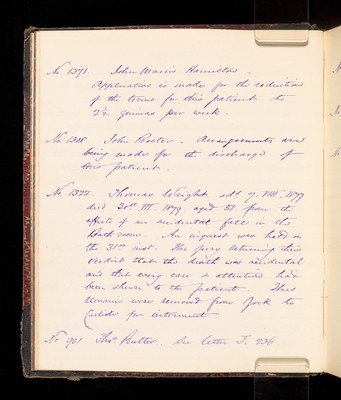 No. 1371. John Marris Hamilton.
Application is made for the reduction
of the terms for this patient to
2½ guineas per week.
No. 1308. John Procter. Arrangements are
being made for the discharge of
this patient.
No. 1322. Thomas Wright adt. 7. VIII. 1897
died 30th III 1899 aged 51 from the
effects of an accidental fall in the
Bath room. An inquest was held on
the 31st inst. The jury returning their
verdict that the death was accidental
and that every care & attention had
been shewn to the patient. The
remains were removed from York to
Carlisle for interment
No 901 Thos. Rutter. See letter J. 236